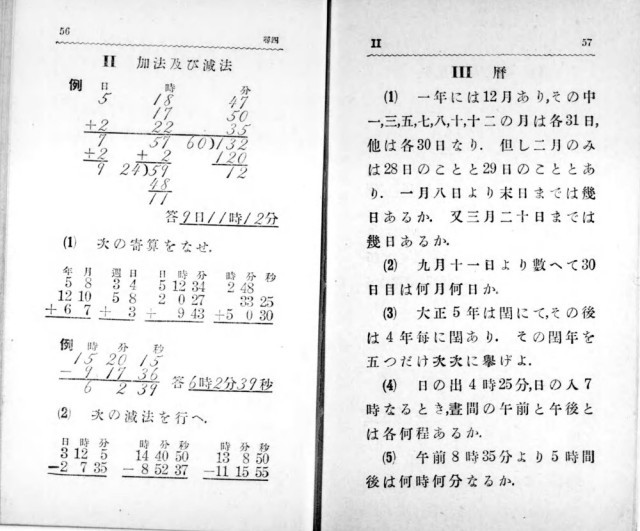 56
尋四
II 加法及び減法
例 日 時 分
5 18 47
17 50
+2 22 35
7 59 60)132
+2 +2 120
9 24)59 12
48
11
答9日11時12分
(1) 次の寄算をなせ.
年月 週日 日時分 時分秒
5 8 3 4 5 12 34 2 48
12 10 5 8 2 0 27 33 25
+ 6 7 + 3 + 9 43 +5 0 30
例 時 分 秒
15 20 15
− 9 17 36
6 2 39
答6時2分39秒
(2) 次の減法を行へ.
日時分 時分秒 時分秒
3 12 5 14 40 50 13 8 50
−2 7 35 − 8 52 37 −11 15 55
II 57
III 暦
(1) 一年には12月あり,その中
一,三,五,七,八,十,十二の月は各31日,
他は各30日なり. 但し二月のみ
は28日のことと29日のこととあ
り. 一月八日より末日までは幾
日あるか. 又三月二十日までは
幾日あるか.
(2) 九月十一日より數へて30
日目は何月何日か.
(3) 大正5年は閏にて,その後
は4年毎に閏あり. その閏年を
五つだけ次次に擧げよ.
(4) 日の出4時25分,日の入7
時なるとき,晝間の午前と午後と
は各何程あるか.
(5) 午前8時35分より5時間
後は何時何分なるか.